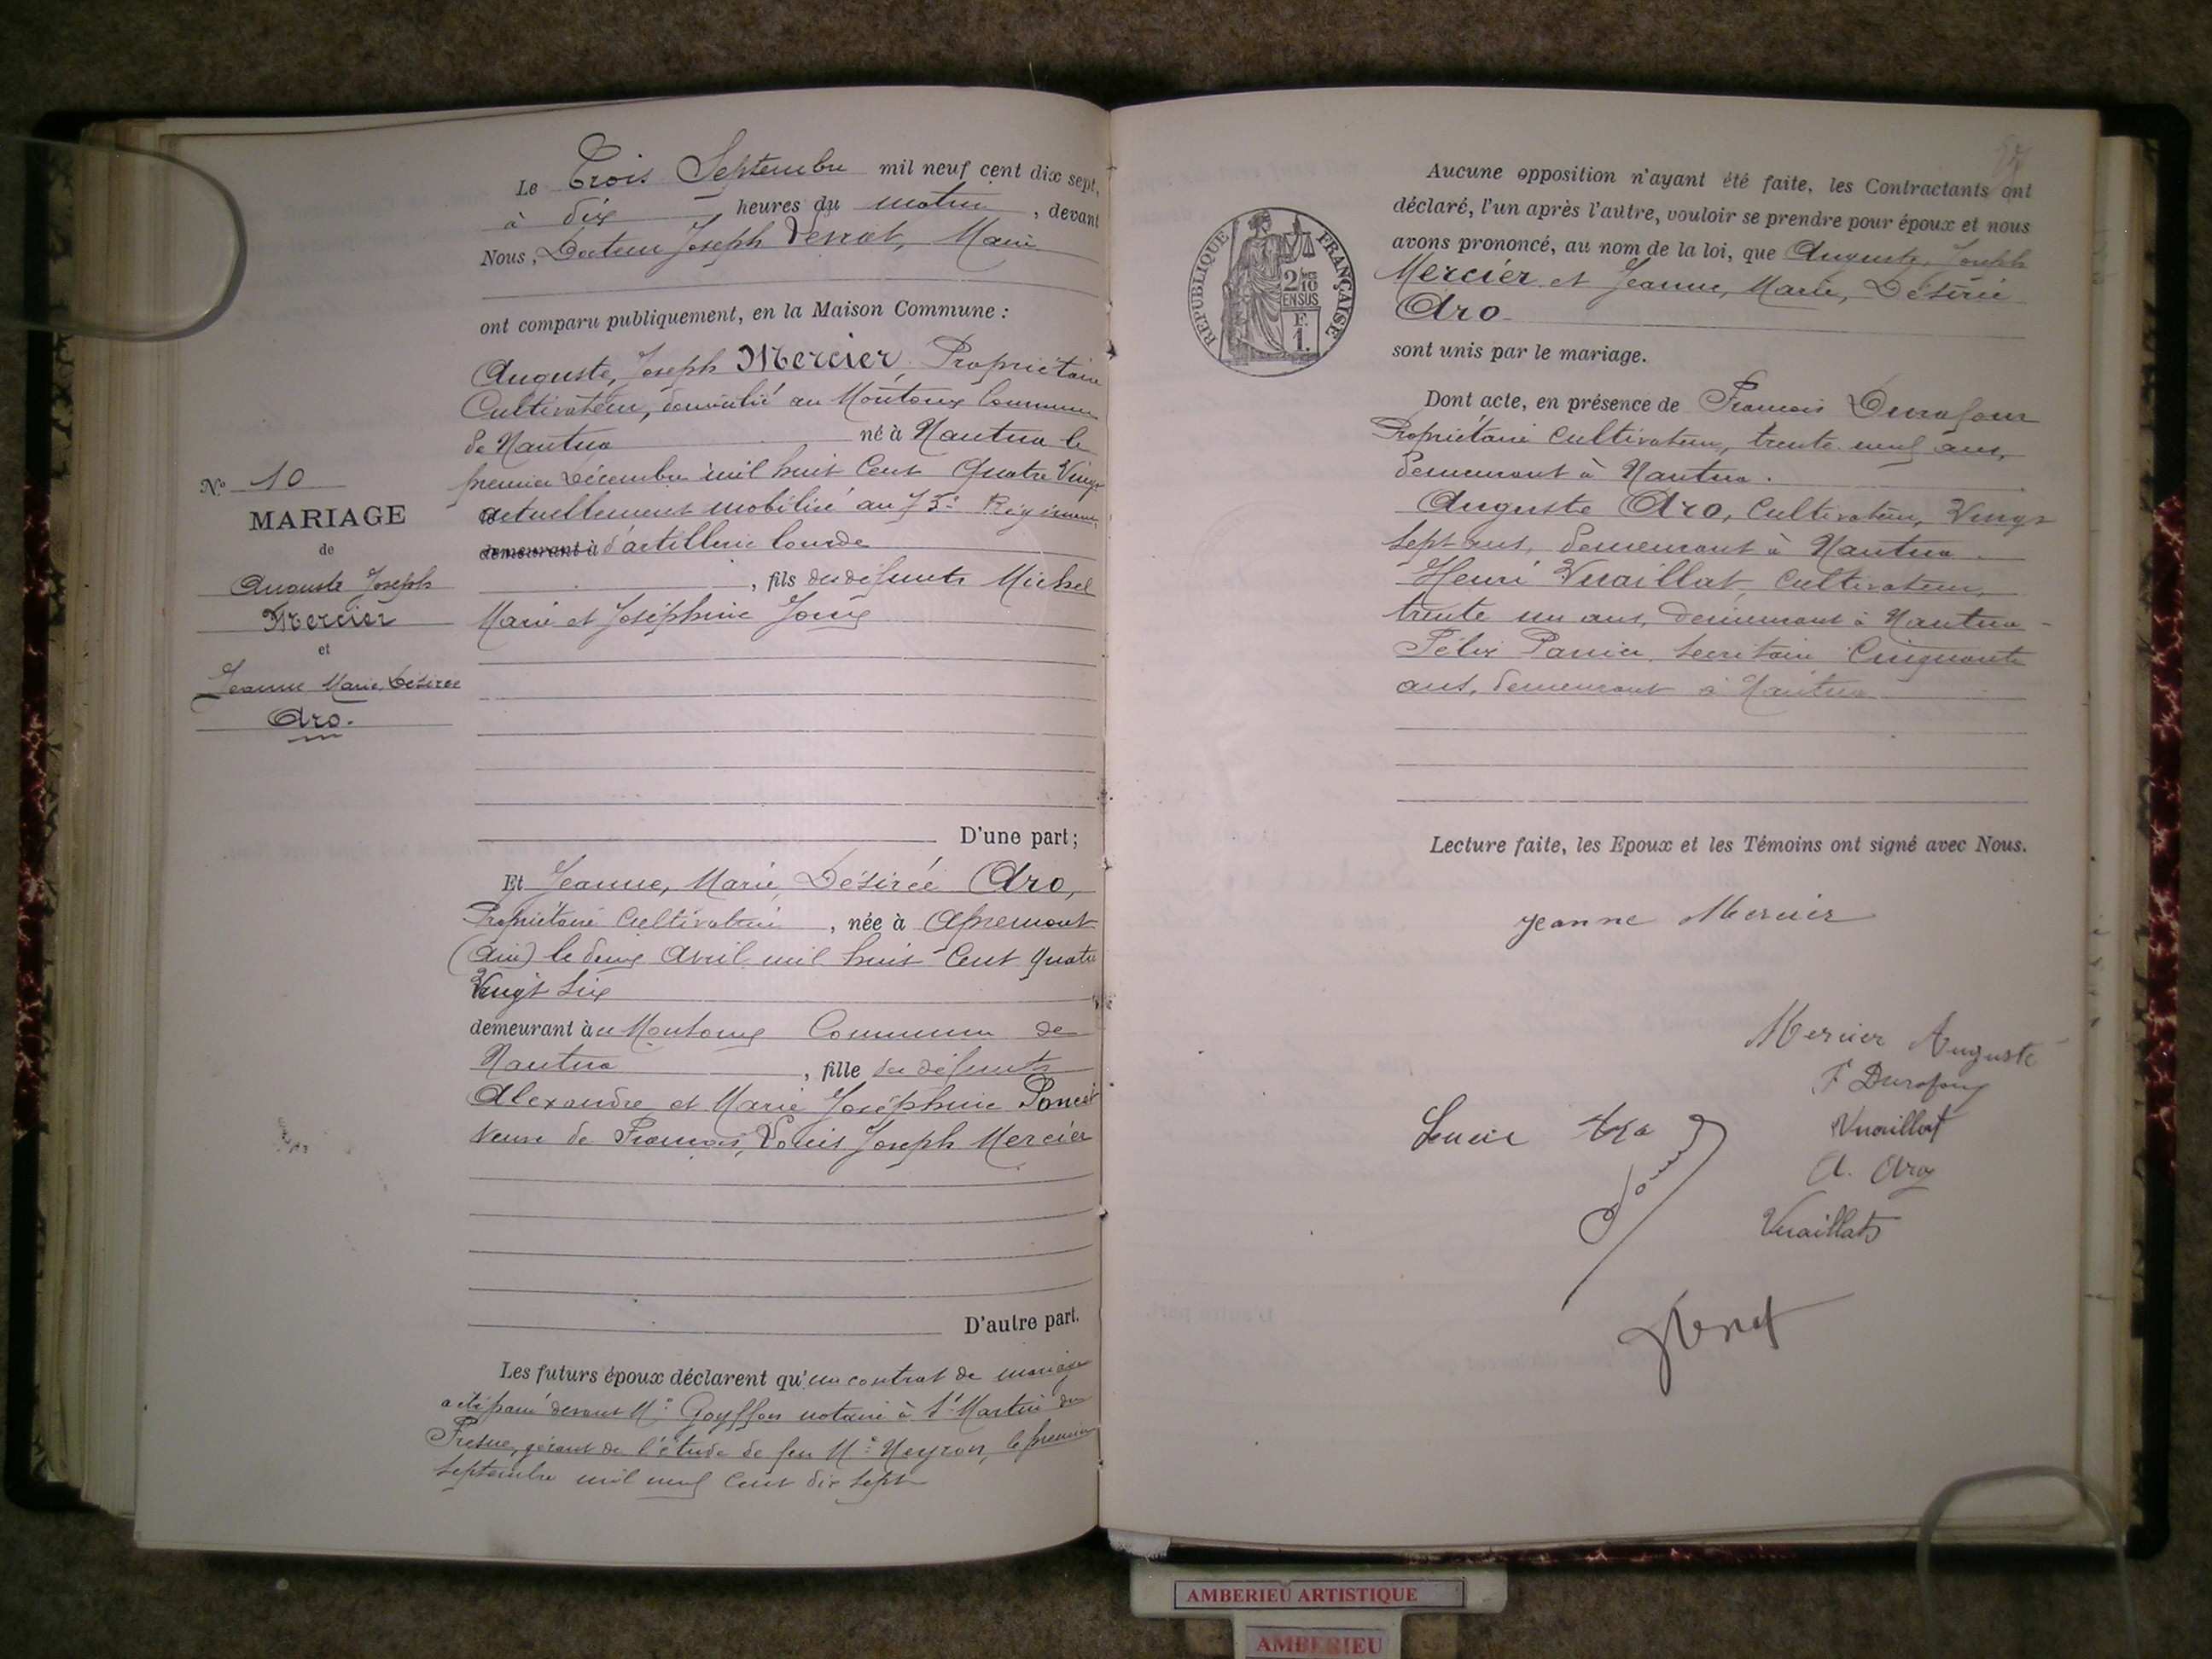 Le Trois Septembre mil neuf cent dix sept,
à dix heures du matin, devant
Nous, Docteur Joseph Maire
ont comparu publiquement, en la Maison Commune :
Auguste, Joseph Mercier, Propriétaire
Cultivateur, domicilié au Montoux Commune
de Nantua né à Nantua le
premier Décembre mil huit Cent Quatre Vingt
actuellement mobilisé au Régiment
demeurant à d'artillerie lourde
, fils des défunts Michel
Marie et Joséphine
No 10
MARIAGE
de
Auguste Joseph
Mercier
et
Jeanne Marie, Désirée
Aro.
D'une part ;
Et Jeanne, Marie, Désirée Aro,
Propriétaire Cultivatrice, née à Apremont
(Ain) le deux Avril mil huit Cent quatre
Vingt Six
demeurant à au Montoux Commune de
Nantua, fille des défunts
Alexandre et Marie Joséphine Poncet
Veuve de François, Louis Joseph Mercier
D'autre part.
Les futurs époux déclarent qu'un contrat de mariage
a été passé devant Me Goyffon notaire à St Martin du
Fresne, gérant de l'étude de feu Me Neyron, le premier
septembre mil neuf Cent dix sept
RÉPUBLIQUE FRANÇAISE
2/10
EN SUS
F.
1.
Aucune opposition n'ayant été faite, les Contractants ont
déclaré, l'un après l'autre, vouloir se prendre pour époux et nous
avons prononcé, au nom de la loi, que Auguste, Joseph
Mercier et Jeanne, Marie, Désirée
Aro
sont unis par le mariage.
Dont acte, en présence de François Durafour
Propriétaire Cultivateur, trente neuf ans,
demeurant à Nantua.
Auguste Aro, Cultivateur, Vingt
sept ans, demeurant à Nantua.
Henri Vuaillat, Cultivateur,
trente un ans, demeurant à Nantua
Félix Panier Secrétaire Cinquante
ans, demeurant à Nantua
Lecture faite, les Epoux et les Témoins ont signé avec Nous.
Jeanne Mercier
Mercier Auguste
F Durafour
Vuaillat
A. Aro
Vuaillat
AMBERIEU ARTISTIQUE
AMBERIEU